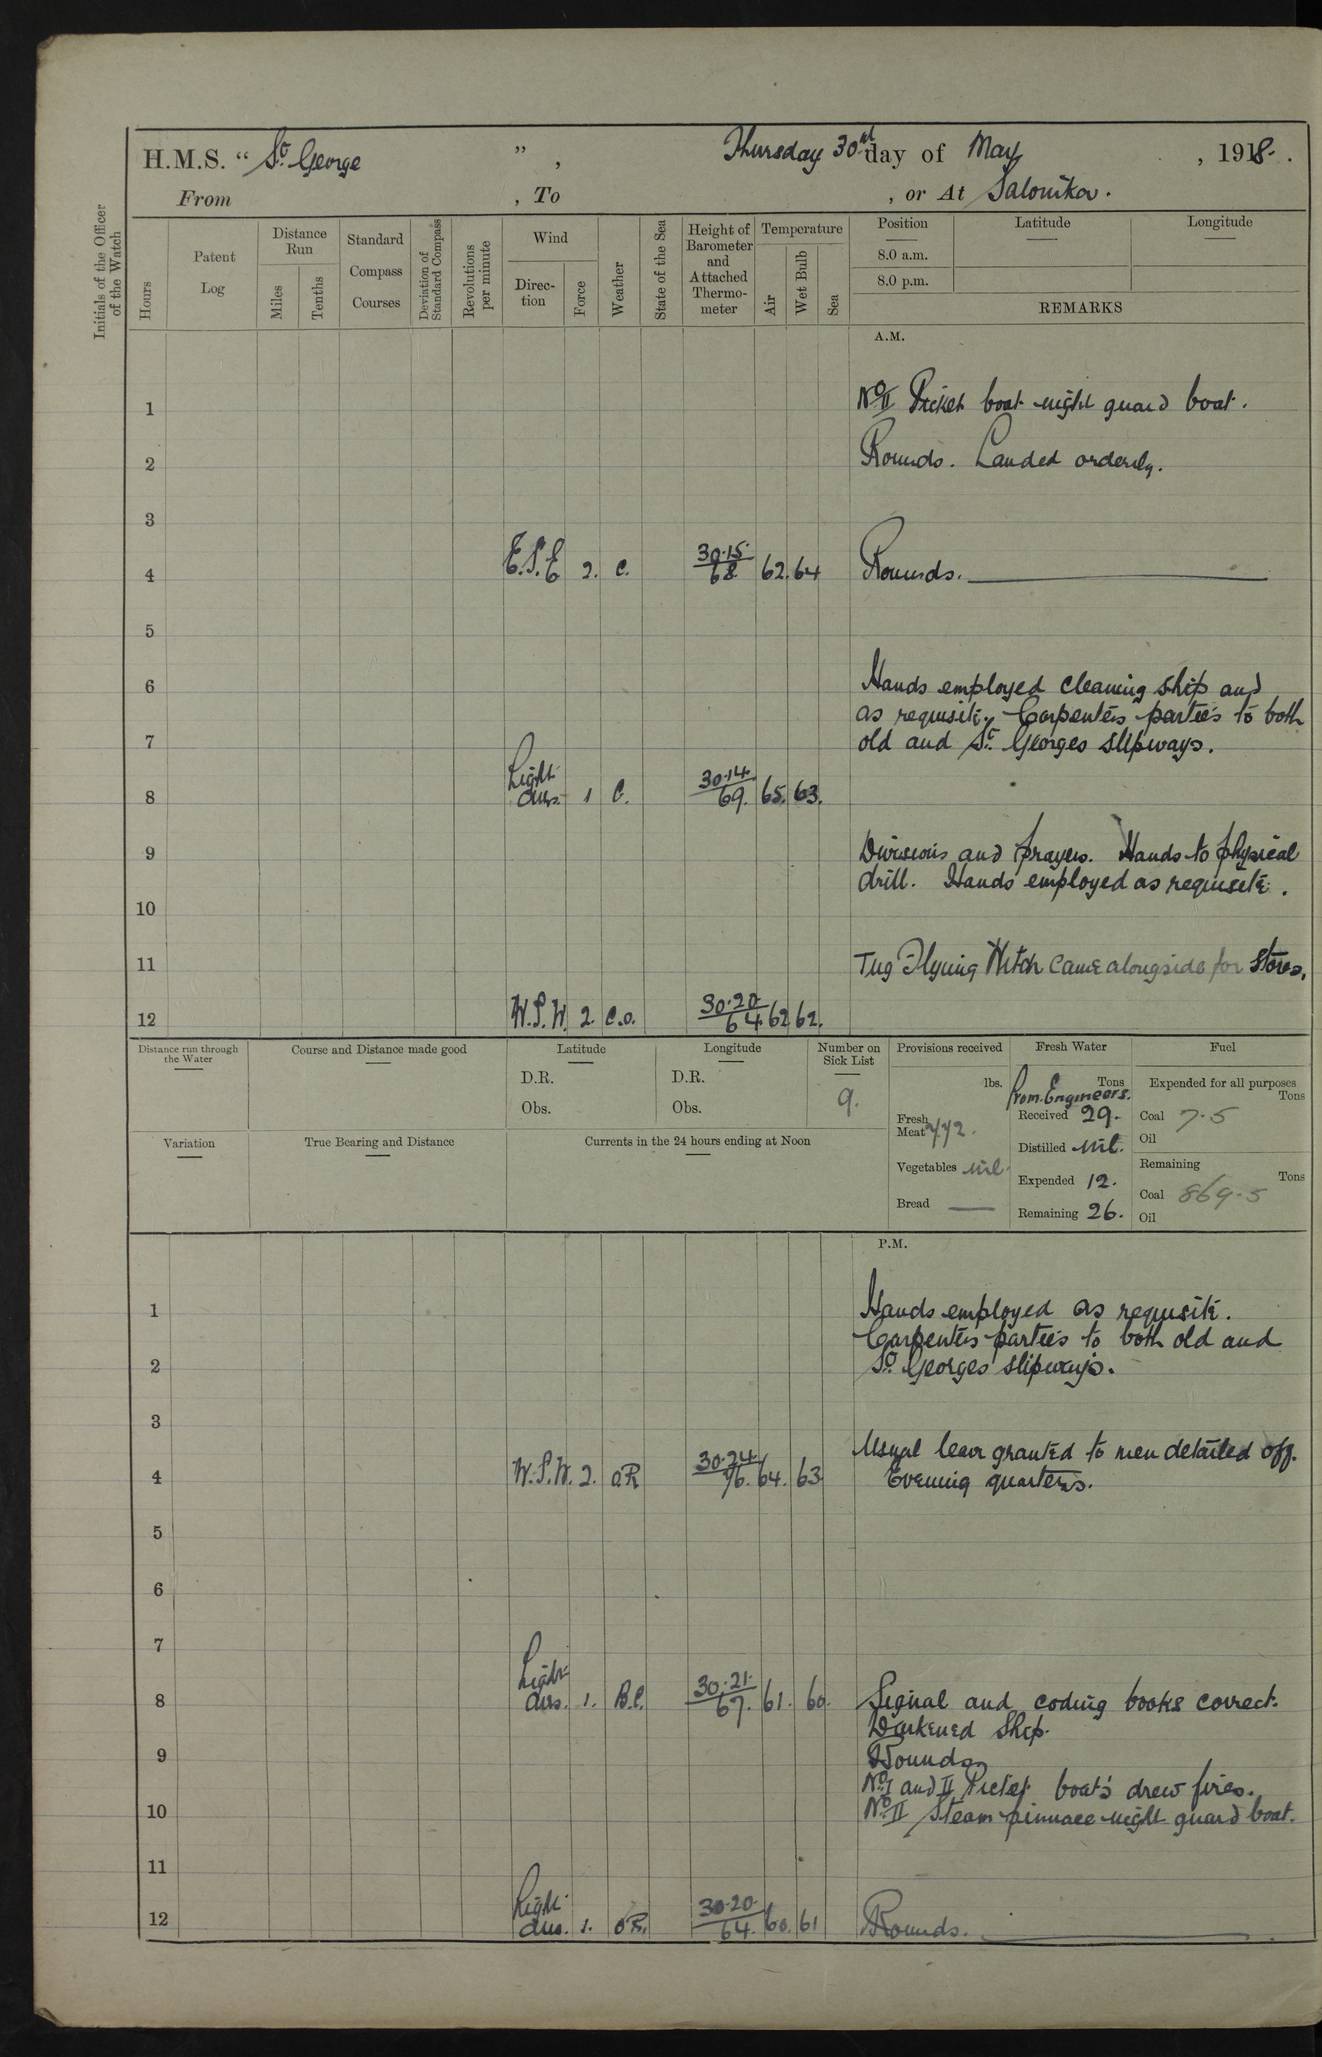 H.M.S. “ St. George ” , Thursday 30th day of May , 1918.
From , To , or At Salonika.
Initials of the Officer of the Watch
Hours
Patent Log
Distance Run
Miles
Tenths
Standard Compass Courses
Deviation of Standard Compass
Revolutions per minute
Wind
Direction
Force
Weather
State of the Sea
Height of Barometer and Attached Thermometer
Temperature
Air
Wet Bulb
Sea
Position Latitude Longitude
8.0 a.m.
8.0 p.m.
REMARKS
A.M.
1 No II Picket boat night guard boat.
2 Rounds. Landed orderly.
3
4 E.S.E 2. C. 30.15 / 68 62. 64 Rounds.
5
6 Hands employed cleaning ship and
as requisite, Carpenters parties to both
7 old and St. Georges slipways.
8 Light airs. 1 C. 30.14 / 69. 65. 63.
9 Divisions and prayers. Hands to physical
drill. Hands employed as requisite.
10
11 Tug Flying Witch came alongside for stores.
12 W.S.W. 2. C.O. 30.20 / 64 62 62.
Distance run through the Water
Course and Distance made good
Latitude
D.R.
Obs.
Longitude
D.R.
Obs.
Number on Sick List
9.
Provisions received
lbs.
Fresh Meat 442.
Vegetables nil.
Bread —
Fresh Water
Tons
From Engineers.
Received 29.
Distilled nil.
Expended 12.
Remaining 26.
Fuel
Expended for all purposes
Tons
Coal 7.5
Oil
Remaining
Tons
Coal 869.5
Oil
Variation
True Bearing and Distance
Currents in the 24 hours ending at Noon
P.M.
1 Hands employed as requisite.
Carpenters parties to both old and
2 St. Georges slipways.
3
Usual leave granted to men detailed off.
4 W.S.W. 2. OR 30.24 64. 63 Evening quarters.
5
6
7
8 Light airs. 1. B.C. 30.21. / 67. 61. 60. Signal and coding books correct.
Darkened ship.
9 Rounds
No I and II Picket boats drew fires.
10 No II Steam pinnace night guard boat.
11
12 Light airs. 1. OR. 30.20 / 64. 60. 61 Rounds.